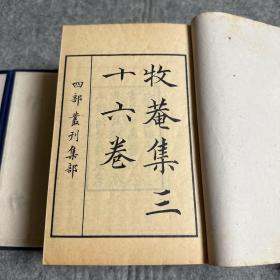 牧菴集三
十六卷
四部叢刊集部